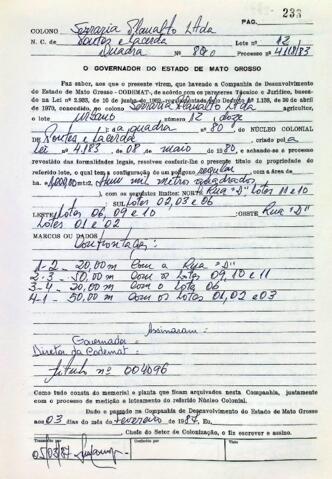 PAG. 233
COLONO Serraria Planalto Ltda
N. C. de Pontes e Lacerda Lote nº 12
Quadra nº 80 Processo nº 4118/83
O GOVERNADOR DO ESTADO DE MATO GROSSO
Faz saber, aos que o presente virem, que havendo a Companhia de Desenvolvimento
do Estado de Mato Grosso - CODEMAT-, de acordo com os pareceres Técnico e Jurídico, baseada
na Lei nº 2.933, de 10 de junho de 1969, regulamentada pelo Decreto nº 1.138, de 30 de abril
de 1970, concedido, ao colono Serraria Planalto Ltda agricultor,
o lote urbano número 12, doze
); da quadra nº 80 do NÚCLEO COLONIAL
de Pontes e Lacerda criado pela
Lei nº 4.183 de 08 de maio de 1980, e achando-se o processo
revestido das formalidades legais, resolveu conferir-lhe o presente título de propriedade do
referido lote, o qual tem a configuração de um polígono regular com a área de
1.000,00 mt2, (Hum mil metros quadrados
), com os seguintes limites: NORTE Rua "D" Lotes 11 e 10
SUL Lotes 02, 03 e 06
LESTE Lotes 06, 09 e 10 :OESTE Rua "D"
Lotes 01 e 02
MARCOS OU DADOS
Confrontações:
1-2 - 20,00m Com a Rua "D"
2-3 - 50,00m Com os Lotes 09, 10 e 11
3-4 - 20,00m Com o Lote 06
4-1 - 50,00m Com os Lotes 01, 02 e 03
Assinaram:
Governador
Diretor da Codemat
Título nº 004096
Como tudo consta do memorial e planta que ficam arquivados nesta Companhia, juntamente
com o processo de medição e loteamento do referido Núcleo Colonial.
Dado e passado na Companhia de Desenvolvimento do Estado de Mato Grosso
aos 03 dias do mês de fevereiro de 1987. Eu,
Chefe do Setor de Colonização, o fiz escrever e assino.
Transcrito por Conferido por Visto
05/03/87